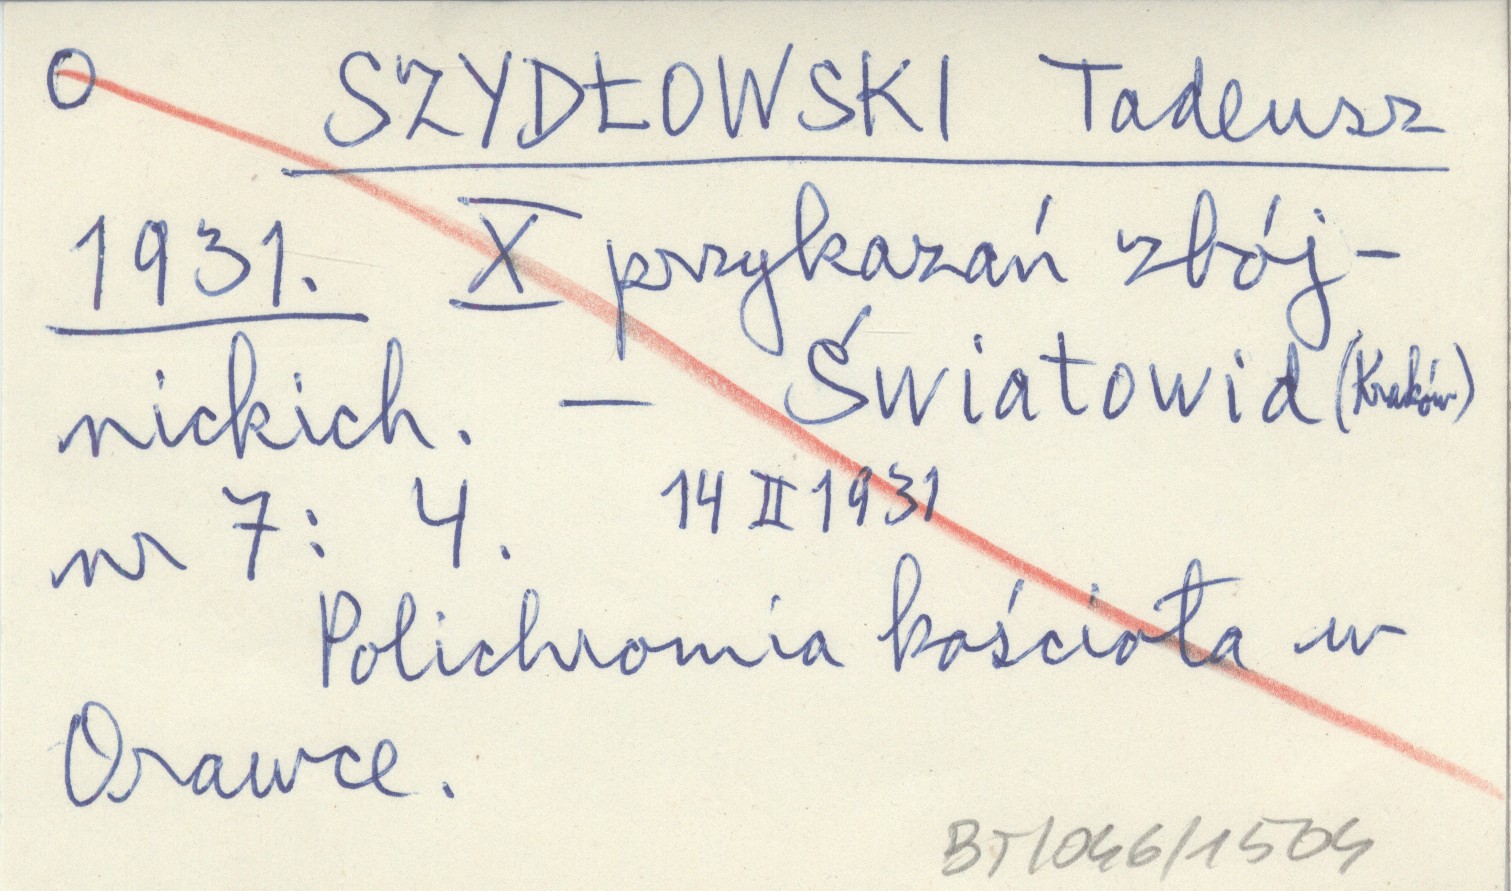 O SZYDŁOWSKI Tadeusz
1931. X przykazań zbój-
nickich. — Światowid (Kraków)
nr 7: 4. 14 II 1931
Polichromia kościoła w
Orawce.
BT/046/1504